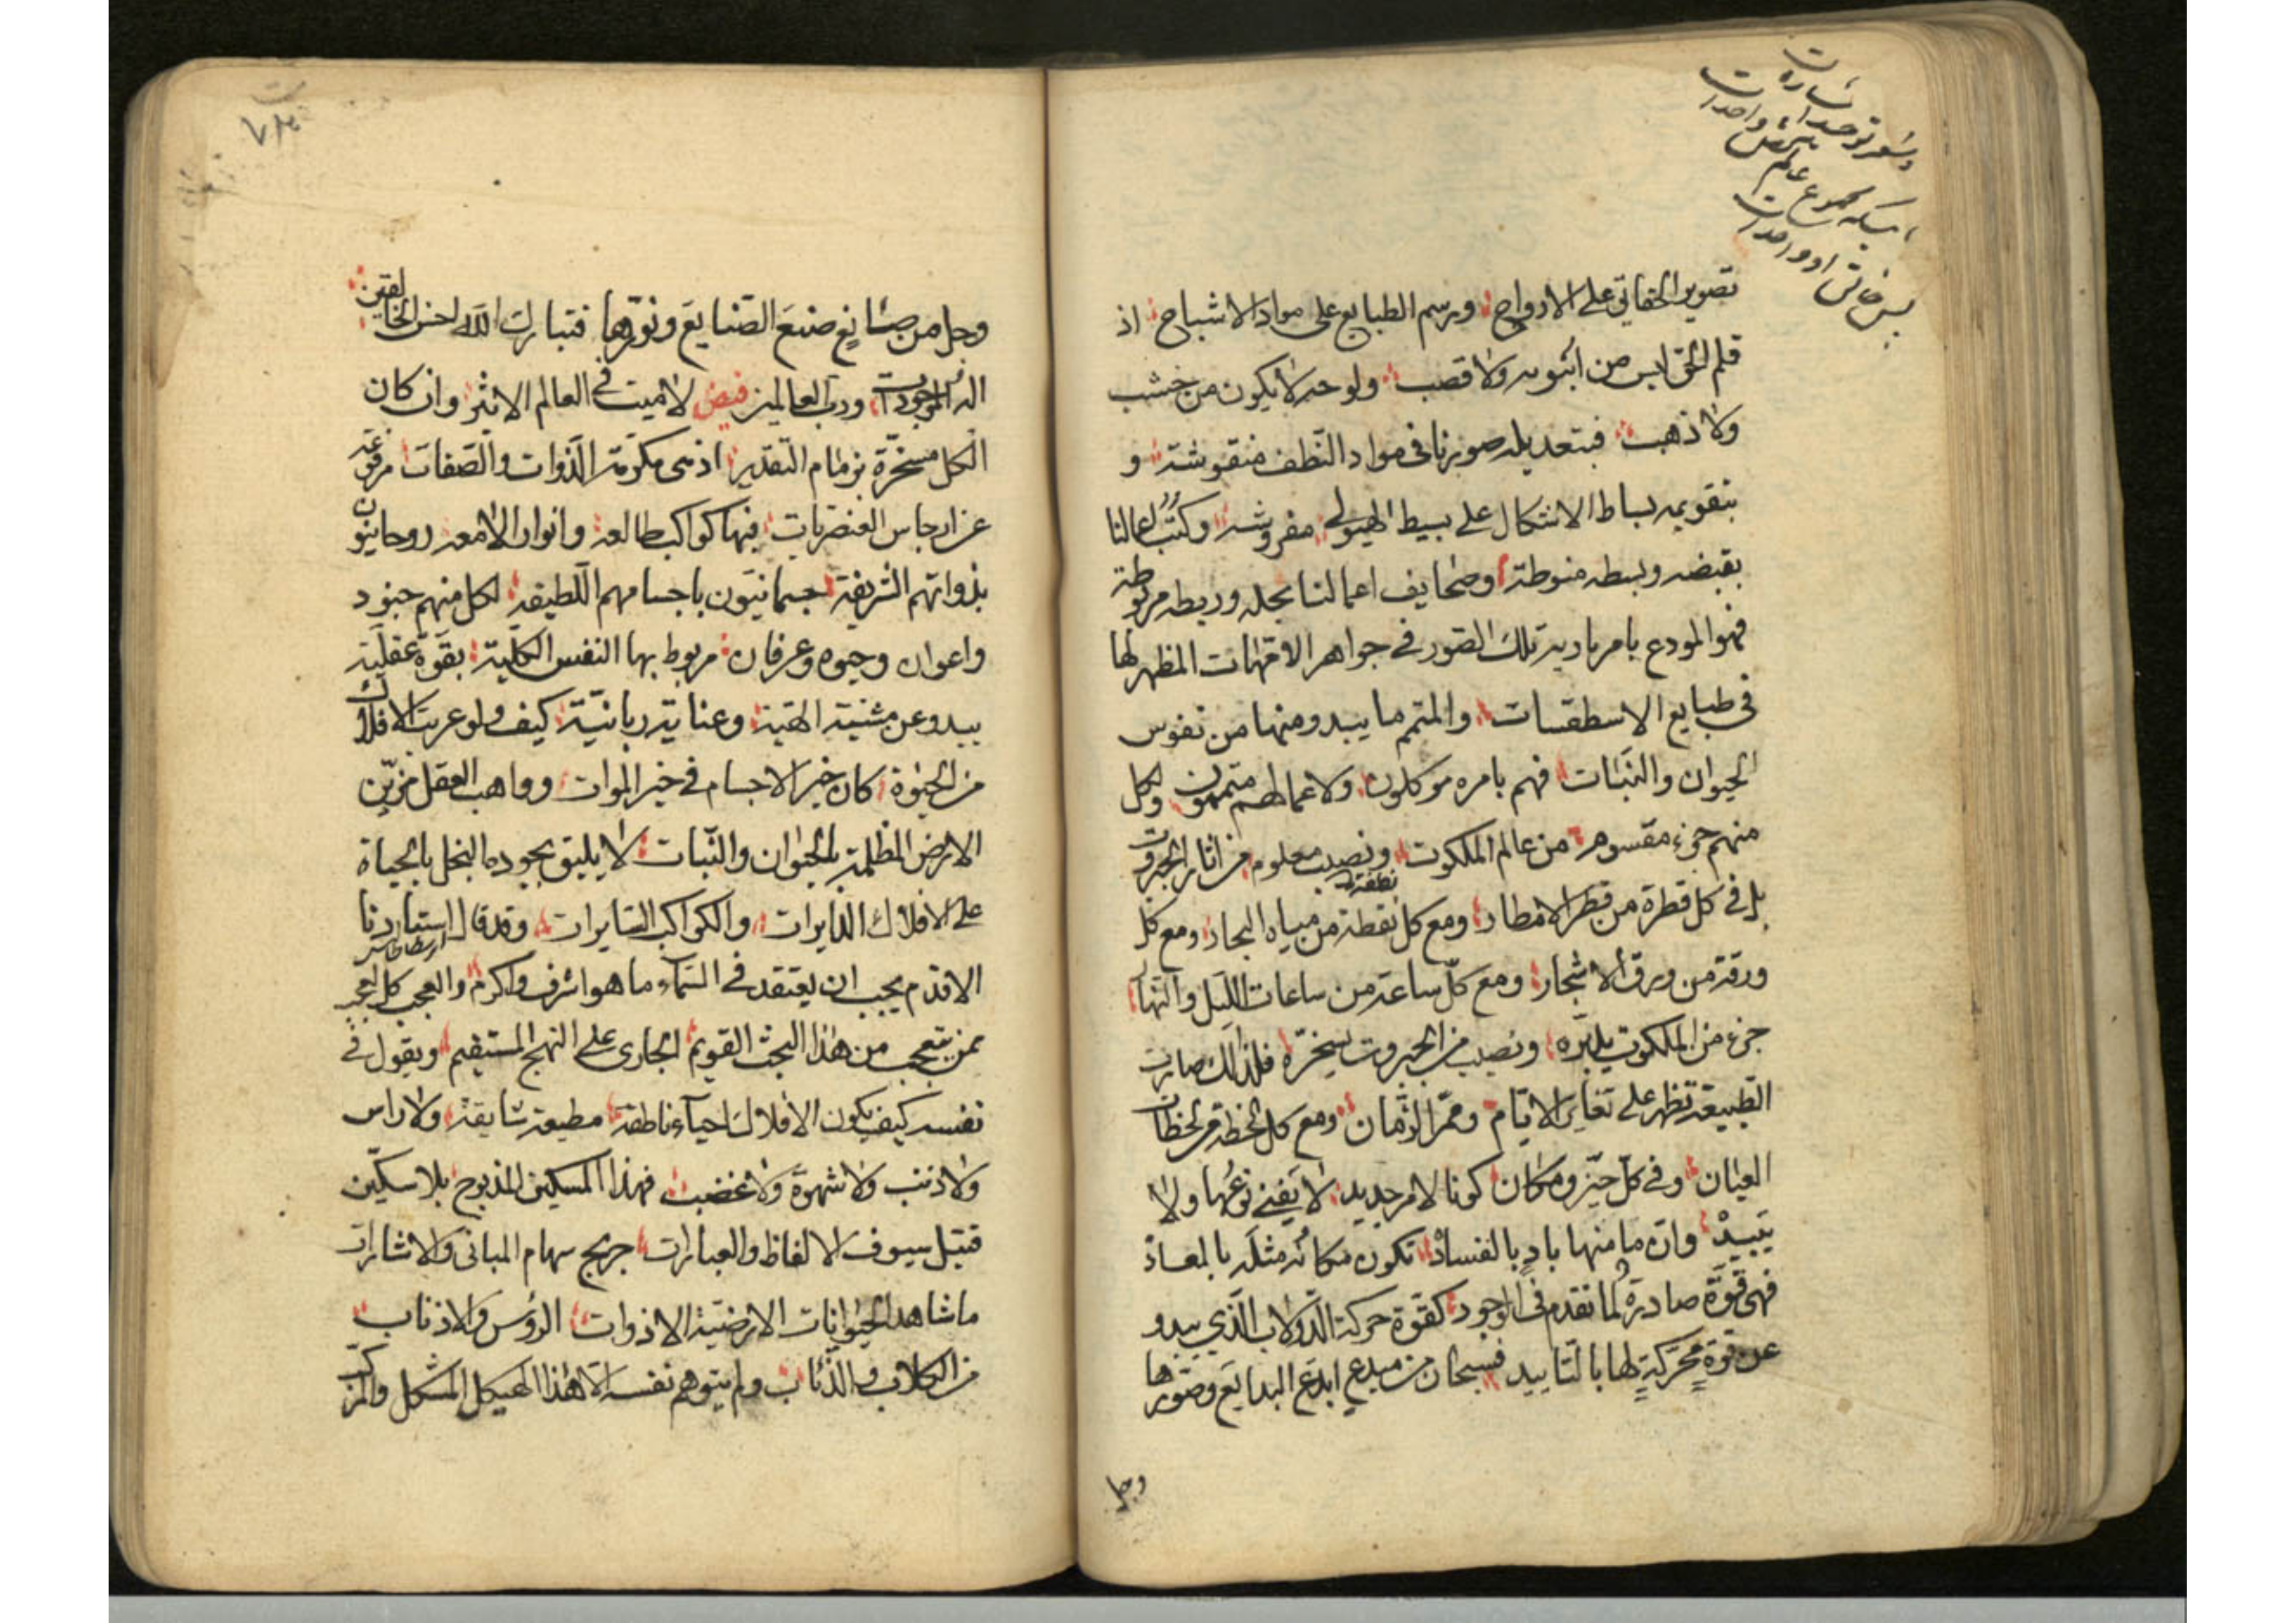 تصوير الحقائق على الارواح ورسم الطبايع على مواد الاشباح اذ
قلم الحق ليس من انبوبه ولا قصب ولوحه لا يكون من خشب
ولا ذهب فبتعديله صورنا فى مواد النّطف منقوشة و
بتقويمه بساط الاشكال على بسيط الهيولى مفروشه وكتب اعمالنا
بقبضه وبسطه منوطة وصحايف اعمالنا بحله وربطه مربوطة
فهو المودع بامر باريه تلك الصور فى جواهر الامهات المظهر لها
فى طبايع الاسطقسات والمتمم ما يبدو منها من نفوس
الحيوان والنبات فهم بامره موكلون ولاعمالهم متممون ولكل
منهم جزء مقسوم من عالم الملكوت ونصيب معلوم من اثار الجبروت
بل فى كل قطرة من قطر الامطار ومع كل نقطة من مياه البحار ومع كل
نطفة
ورقة من ورق الاشجار ومع كلّ ساعة من ساعات اللّيل والنّهار
جزء من الملكوت يدبّره ونصيب من الجبروت يسخرّه فلذلك صارت
الطّبيعة تظهر على تغاير الايّام وممرّ الزّمان ومع كل لحظة من لحظات
العيان وفى كلّ حيّز ومكان كونا لامر جديد لا يفنى نوعها ولا
يَبيدْ وانّ ما منها بادٍ بالفسادْ تكون مكانُه مثلَه بالمعاد
فهى قوّة صادرة لما تقدم فى الوجود كقوّة حركة الدّولاب الّذي يبدو
عن قوة محرّكةٍ لها بالتّاييد فسبحان من مبدع ابدع البدايع وصوّرها
وجل
وجل من صانع صنع الصّنايع ونوّرها فتبارك الله احسن الخالقين
اله الموجودات ورب العالمين فيض لا ميت فى العالم الاثير وان كان
الكل مسخّرة بزمام التّقدير اذ هى مكرمة الذّوات والصّفات مرفوعة
عن ارجاس العنصريات فيها كواكب طالعة وانوار لامعه روحانيون
بذواتهم الشريفة جسمانيّون باجسامهم اللّطيفة لكل منهم جنود
واعوان وحيوه وعرفان مربوط بها النفس الكليّة بقوّة عقليّة
يبدو عن مشيّة الهية وعناية ربانيّة كيف ولو عريت الافلاك
من الحيوة كان خير الاجسام فى خير الموات وواهب العقل مزيّن
الارض المظلمة بالحيوان والنّبات لا يليق بجوده البخل بالحياة
على الافلاك الدّايرات والكواكب السّايرات وقد قال استادنا
ارسطاطاليس
الاقدم يجب ان يعتقد فى السّماء ما هو اشرف واكرم والعجب كل العجب
ممن يتعجب من هذا البحث القويم الجارى على النهج المستقيم ويقول فى
نفسه كيف يكون الافلاك احياء ناطقة مطيعة شايقة ولا راس
ولا ذنب ولا شهوة ولا غضب فهذا المسكين المذبوح بلا سكّين
قتيل سيوف الالفاظ والعبارات جريح سهام المبانى والاشارات
ما شاهد الحيوانات الارضيّة الا ذوات الرؤس والاذناب
من الكلاب والذّئاب ولم يتوهم نفسه الّا هذا الهيكل المشكل والمركّب